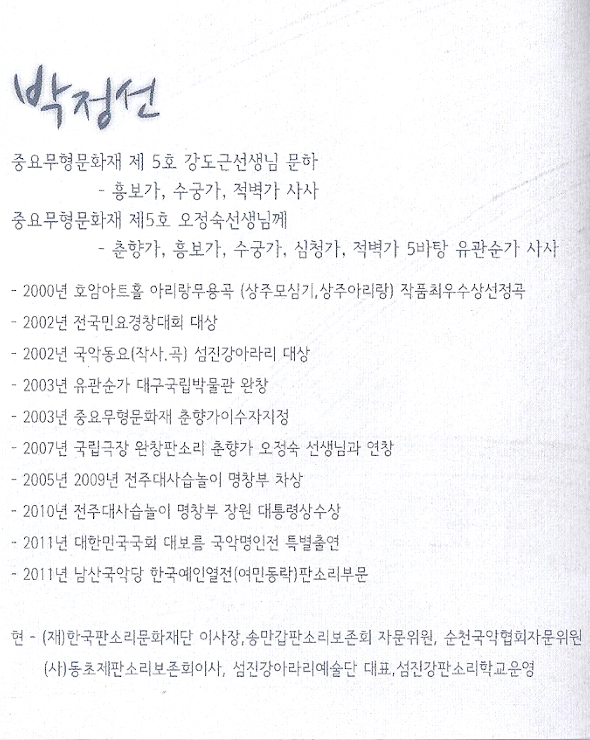 박정선
중요무형문화재 제 5호 강도근선생님 문하
- 흥보가, 수궁가, 적벽가 사사
중요무형문화재 제5호 오정숙선생님께
- 춘향가, 흥보가, 수궁가, 심청가, 적벽가 5바탕 유관순가 사사
- 2000년 호암아트홀 아리랑무용곡 (상주모심기,상주아리랑) 작품최우수상선정곡
- 2002년 전국민요경창대회 대상
- 2002년 국악동요(작사.곡) 섬진강아라리 대상
- 2003년 유관순가 대구국립박물관 완창
- 2003년 중요무형문화재 춘향가이수자지정
- 2007년 국립극장 완창판소리 춘향가 오정숙 선생님과 연창
- 2005년 2009년 전주대사습놀이 명창부 차상
- 2010년 전주대사습놀이 명창부 장원 대통령상수상
- 2011년 대한민국국회 대보름 국악명인전 특별출연
- 2011년 남산국악당 한국예인열전(여민동락)판소리부문
현 - (재)한국판소리문화재단 이사장,송만갑판소리보존회 자문위원, 순천국악협회자문위원
(사)동초제판소리보존회이사, 섬진강아라리예술단 대표,섬진강판소리학교운영